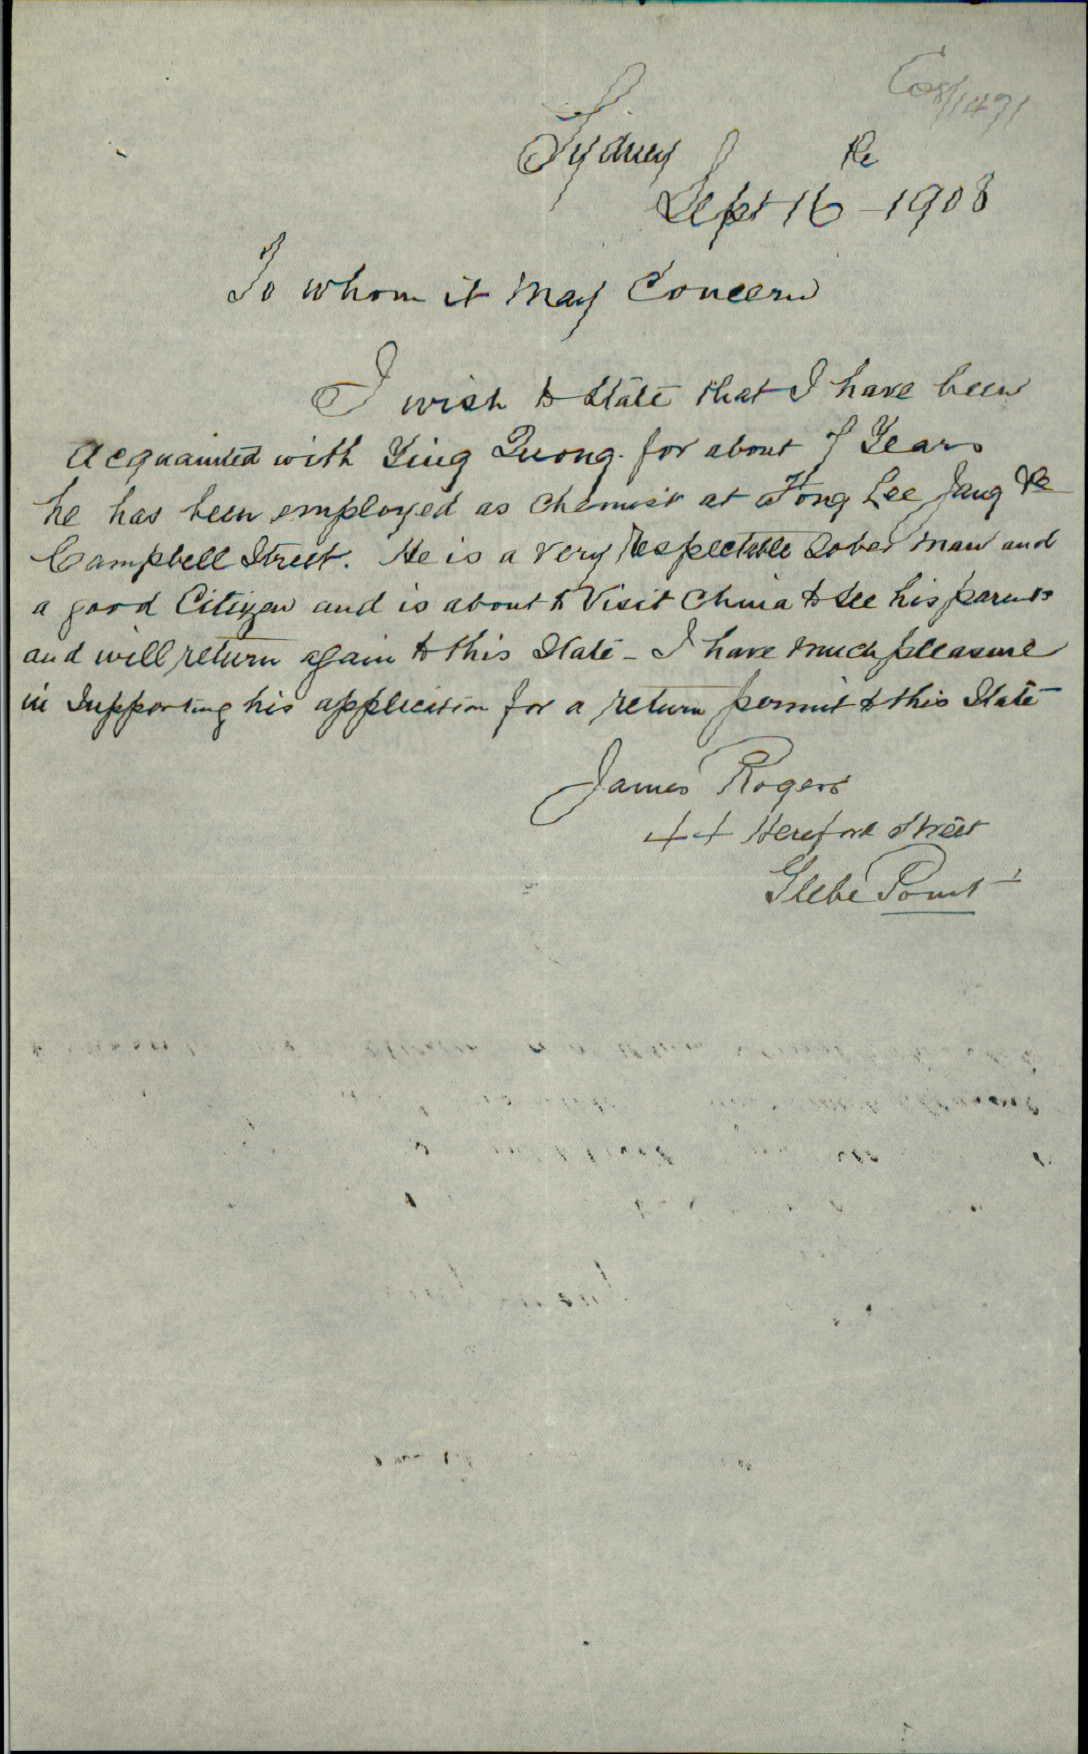 C08/1471
Sydney
Sept 16 th - 1908
To whom it May Concern
I wish to State that I have been
Acquainted with Ying Quong. for about 7 Years
he has been employed as Chemist at Hong Lee Jang &c
Campbell Street. He is a very Respectable Sober Man and
a good Citizen and is about to Visit China to See his parents
and will return again to this State - I have Much pleasure
in Supporting his application for a return permit to this State
James Rogers
44 Hereford Street
Glebe Point